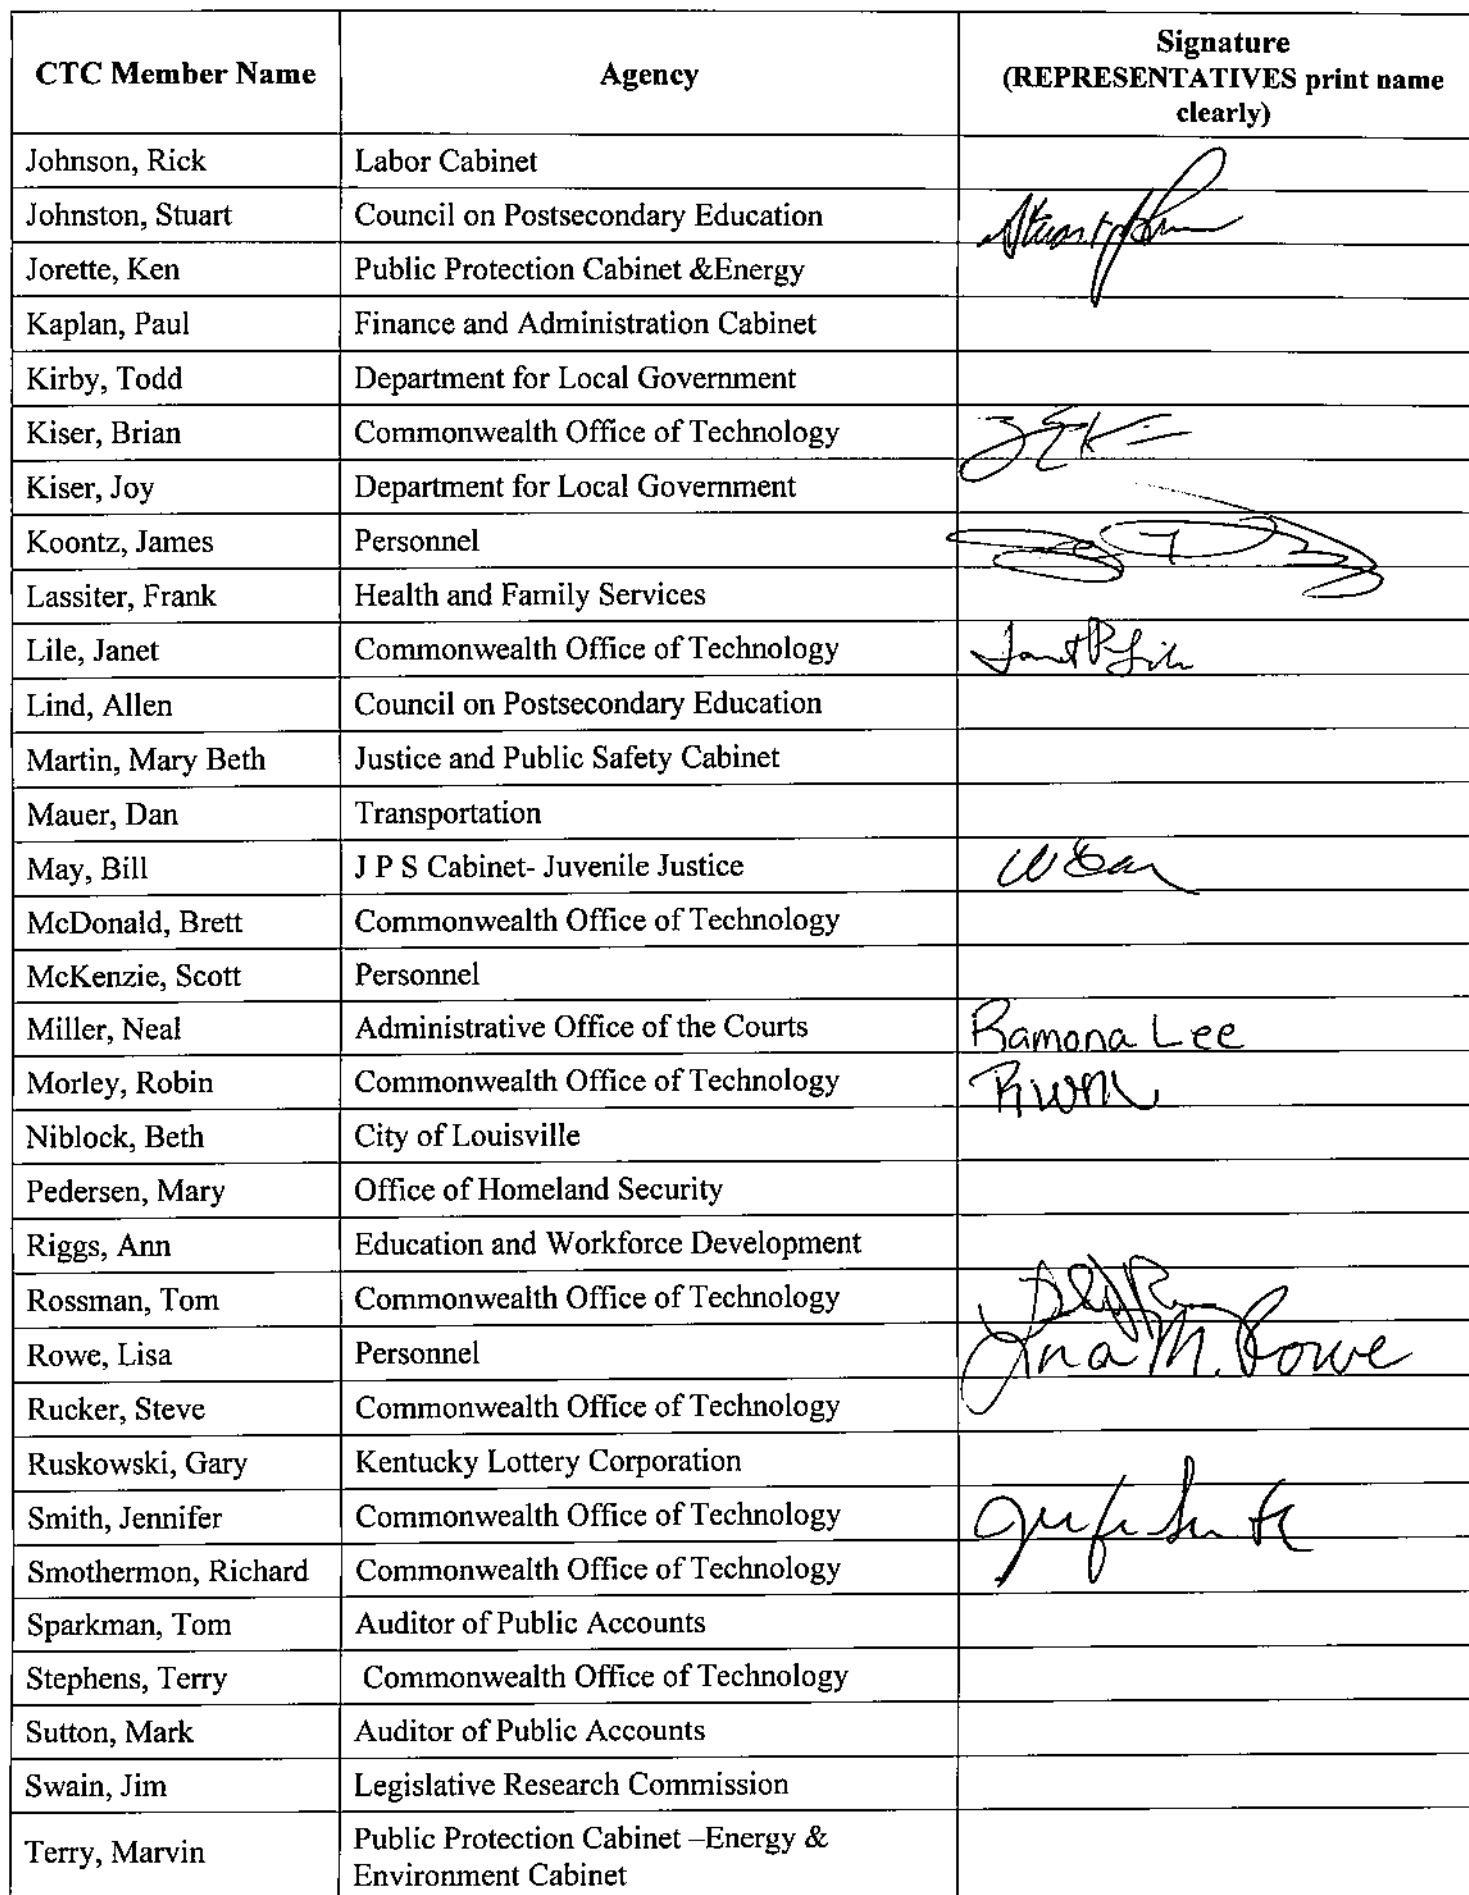 CTC Member Name Agency Signature
(REPRESENTATIVES print name
clearly)
Johnson, Rick Labor Cabinet
Johnston, Stuart Council on Postsecondary Education
Jorette, Ken Public Protection Cabinet &Energy
Kaplan, Paul Finance and Administration Cabinet
Kirby, Todd Department for Local Government
Kiser, Brian Commonwealth Office of Technology
Kiser, Joy Department for Local Government
Koontz, James Personnel
Lassiter, Frank Health and Family Services
Lile, Janet Commonwealth Office of Technology
Lind, Allen Council on Postsecondary Education
Martin, Mary Beth Justice and Public Safety Cabinet
Mauer, Dan Transportation
May, Bill J P S Cabinet- Juvenile Justice
McDonald, Brett Commonwealth Office of Technology
McKenzie, Scott Personnel
Miller, Neal Administrative Office of the Courts Ramona Lee
Morley, Robin Commonwealth Office of Technology
Niblock, Beth City of Louisville
Pedersen, Mary Office of Homeland Security
Riggs, Ann Education and Workforce Development
Rossman, Tom Commonwealth Office of Technology
Rowe, Lisa Personnel M. Rowe
Rucker, Steve Commonwealth Office of Technology
Ruskowski, Gary Kentucky Lottery Corporation
Smith, Jennifer Commonwealth Office of Technology
Smothermon, Richard Commonwealth Office of Technology
Sparkman, Tom Auditor of Public Accounts
Stephens, Terry Commonwealth Office of Technology
Sutton, Mark Auditor of Public Accounts
Swain, Jim Legislative Research Commission
Terry, Marvin Public Protection Cabinet –Energy &
Environment Cabinet